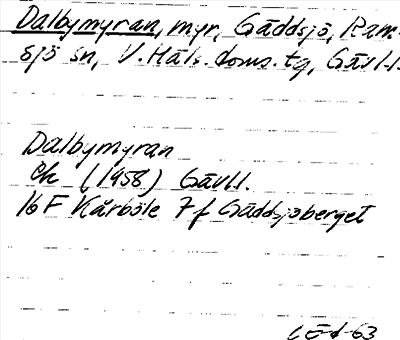 Dalbymyran, myr, Gäddsjö, Ram-
sjö sn, V. Häls. doms. tg, Gävl.l.
Dalbymyran
Ek (1958) Gävl.l.
16 F Kårböle 7 f Gäddsjöberget
63